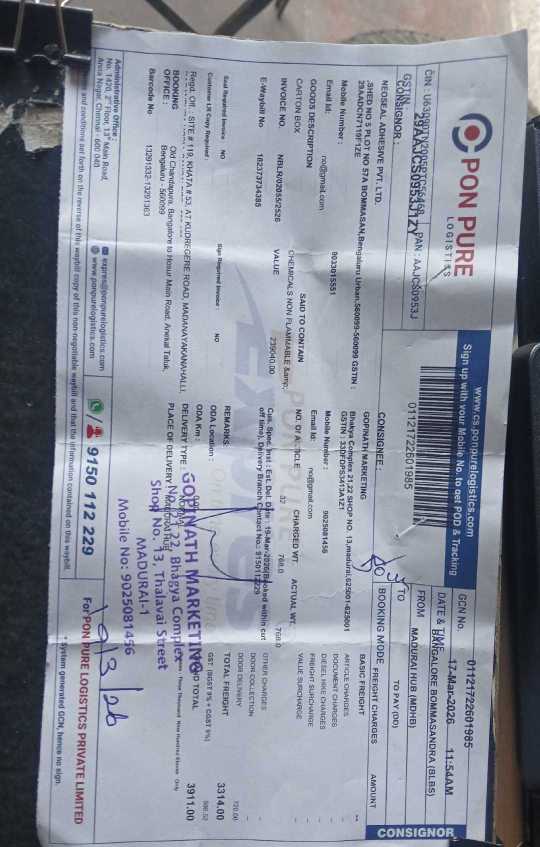 PON PURE
LOGISTICS
www.cs.ponpurelogistics.com
Sign up with your Mobile No. to get POD & Tracking
01121722601985
GCN No. 01121722601985
DATE & TIME 17-Mar-2026 11:54AM
FROM BANGALORE BOMMASANDRA (BLBS)
TO MADURAI HUB (MDHB)
BOOKING MODE TO PAY (DD)
CIN : PAN : AAJCS0953J
GSTIN : 29AAJCS0953J1ZY
CONSIGNOR :
NEOSEAL ADHESIVE PVT. LTD.
,SHED NO 3 PLOT NO 57A BOMMASAN,Bengaluru Urban,560099-560099 GSTIN :
29AADCN7119F1ZE
Mobile Number : 9033015551
Email Id: no@gmail.com
CONSIGNEE :
GOPINATH MARKETING
Bhakya Complex 21,22,SHOP NO. 13,madurai,625001-625001
GSTIN : 33DFDPS3413A1Z1
Mobile Number : 9025081456
Email Id: no@gmail.com
GOODS DESCRIPTION SAID TO CONTAIN NO. OF ARTICLE CHARGED WT ACTUAL WT.
CARTON BOX CHEMICALS NON FLAMMABLE &amp; 32 768.0 768.0
INVOICE NO. VALUE
NBLR/02055/2526 239040.00
E-Waybill No 182373734385
Cus. Spec. Inst : Est. Del. Date : 19-Mar-2026(Booked within cut
off time), Delivery Branch Contact No.: 9150112229
Seal Required Invoice : NO Sign Required Invoice : NO
Customer LR Copy Required :
REMARKS:
ODA Location :
ODA Km :
DELIVERY TYPE :
PLACE OF DELIVERY
FREIGHT CHARGES AMOUNT
BASIC FREIGHT --
ARTICLE CHARGES
DOCUMENT CHARGES
DIESEL HIKE CHARGES
FREIGHT SURCHARGE
VALUE SURCHARGE
OTHER CHARGES
DOOR COLLECTION
DOOR DELIVERY 720.00
TOTAL FREIGHT 3314.00
GST: (SGST 9% + CGST 9%) 596.52
TOTAL 3911.00
CONSIGNOR
Regd. Off. : SITE # 119, KHATA # 53, AT KUDREGERE ROAD, MADANAYAKANAHALLI,
BOOKING OFFICE : Old Chandapura, Bangalore to Hosur Main Road, Anekal Taluk,
Bengaluru - 560099
Barcode No 13291332-13291363
GOPINATH MARKETING
No. 22, Bhagya Complex
Shop No. 13, Thalavai Street
MADURAI-1
Mobile No: 9025081456
19/3/26
Administrative Office :
No. 1420, 2nd Floor, 13th Main Road,
Anna Nagar, Chennai - 600 040
express@ponpurelogistics.com
www.ponpurelogistics.com
9150 112 229
For PON PURE LOGISTICS PRIVATE LIMITED
and conditions set forth on the reverse of this waybill copy of this non-negotiable waybill and that the information contained on this waybill
* System generated GCN, hence no sign.